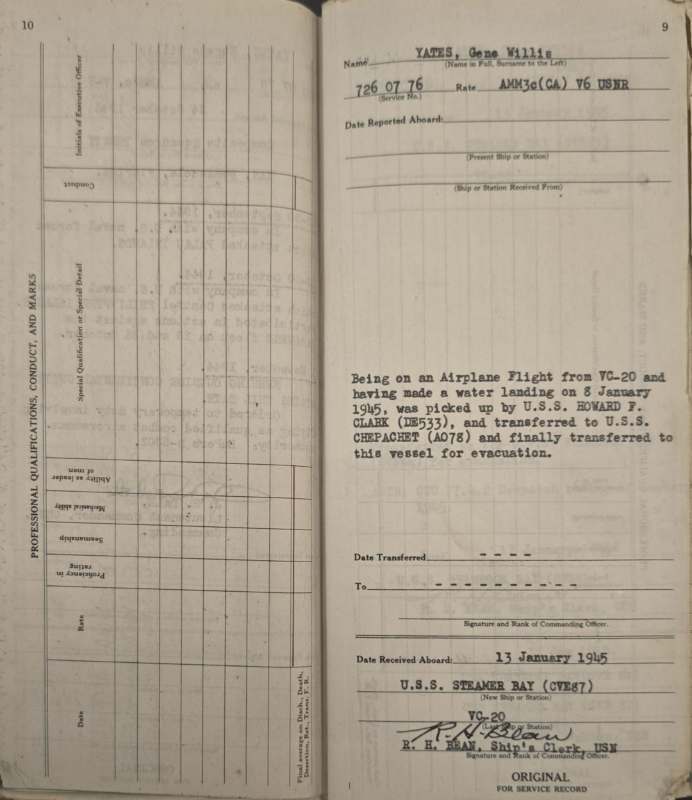 10
PROFESSIONAL QUALIFICATIONS, CONDUCT, AND MARKS
Date
Rate
Proficiency in
rating
Seamanship
Mechanical ability
Ability as leader
of men
Special Qualification or Special Detail
Conduct
Initials of Executive Officer
Final average on Disch., Death,
Desertion, Ret., Trans. F. R.
9
Name YATES, Gene Willis
(Name in Full, Surname to the Left)
726 07 76 Rate AMM3c(CA) V6 USNR
(Service No.)
Date Reported Aboard:
(Present Ship or Station)
(Ship or Station Received From)
Being on an Airplane Flight from VC-20 and
having made a water landing on 8 January
1945, was picked up by U.S.S. HOWARD F.
CLARK (DE533), and transferred to U.S.S.
CHEPACHET (AO78) and finally transferred to
this vessel for evacuation.
Date Transferred - - - -
To - - - - - - - - - -
Signature and Rank of Commanding Officer.
Date Received Aboard: 13 January 1945
U.S.S. STEAMER BAY (CVE87)
(New Ship or Station)
VC-20
(Last Ship or Station)
R. H. Bean
R. H. BEAN, Ship's Clerk, USN
Signature and Rank of Commanding Officer.
ORIGINAL
FOR SERVICE RECORD